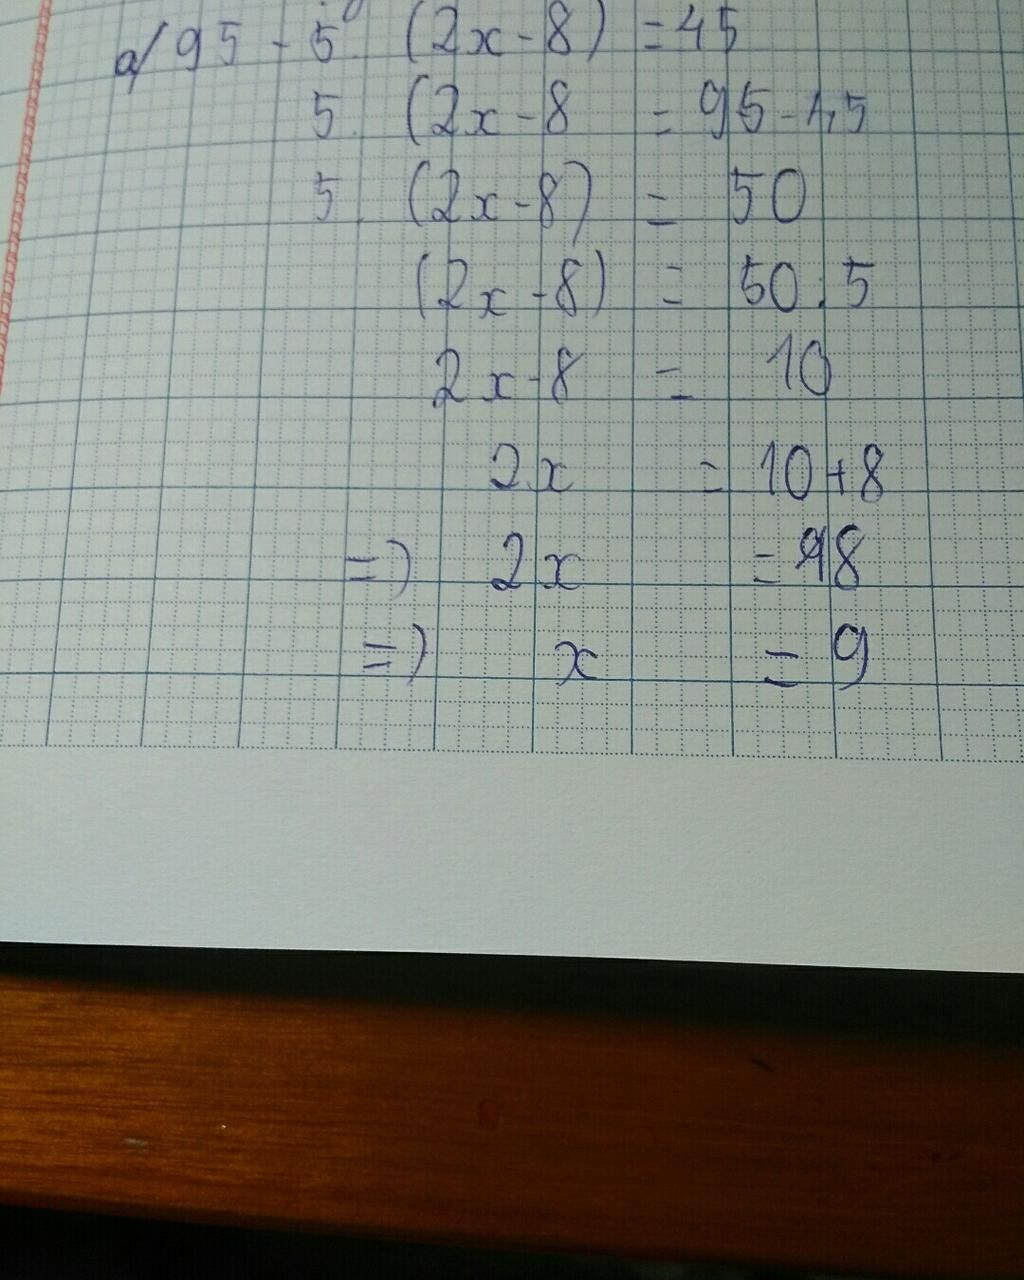 a/ 95 - 5. (2x - 8) = 45
5. (2x - 8 = 95 - 45
5. (2x - 8) = 50
(2x - 8) = 50 : 5
2x - 8 = 10
2x = 10 + 8
=) 2x = 18
=) x = 9